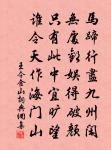 馬蹄行盡九州間
無處歡娛得破顏
只有此中宜曠望
誰令天作海門山
王令金山